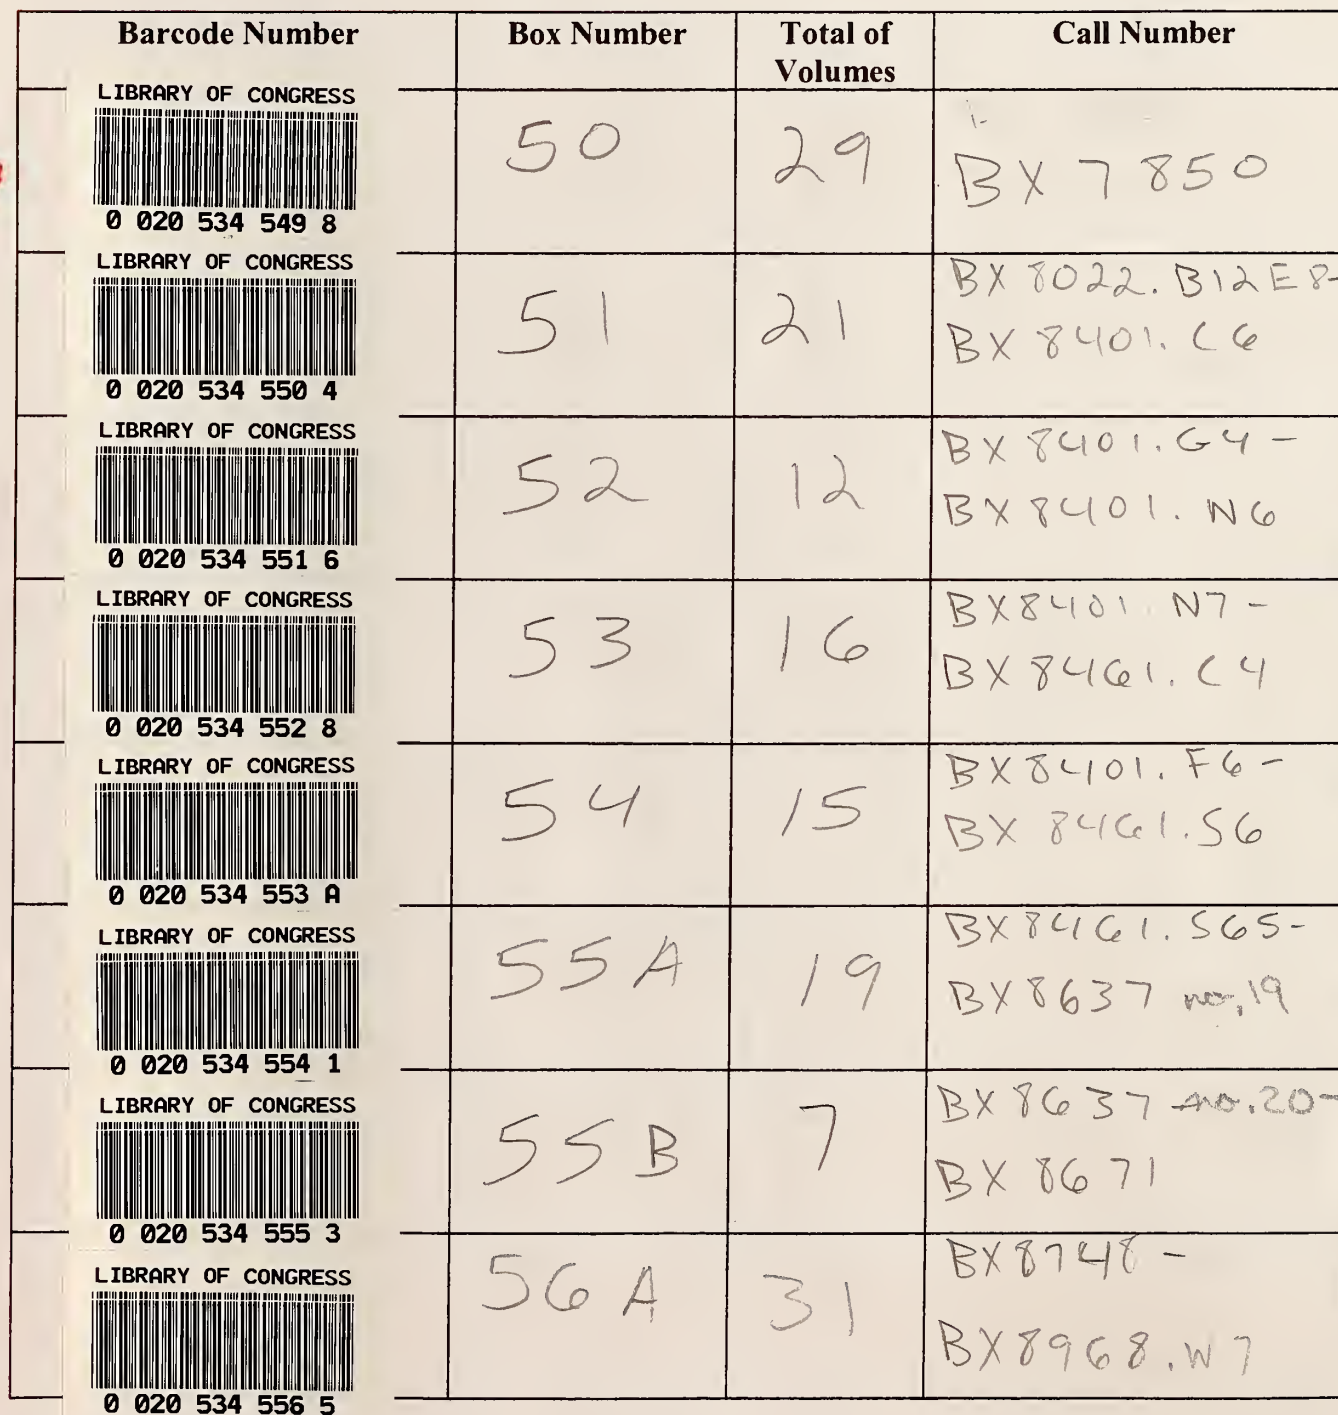 Barcode Number Box Number Total of Volumes Call Number
LIBRARY OF CONGRESS
0 020 534 549 8
50 29 BX 7850
LIBRARY OF CONGRESS
0 020 534 550 4
51 21 BX 8022. B12E8-
BX 8401. C6
LIBRARY OF CONGRESS
0 020 534 551 6
52 12 BX 8401. G4 -
BX 8401. N6
LIBRARY OF CONGRESS
0 020 534 552 8
53 16 BX8401. N7 -
BX 8461. C4
LIBRARY OF CONGRESS
0 020 534 553 A
54 15 BX8401. F6 -
BX 8461. S6
LIBRARY OF CONGRESS
0 020 534 554 1
55A 19 BX8461. S65-
BX8637 no. 19
LIBRARY OF CONGRESS
0 020 534 555 3
55B 7 BX 8637 no. 20-
BX 8671
LIBRARY OF CONGRESS
0 020 534 556 5
56A 31 BX8748 -
BX8968. W7